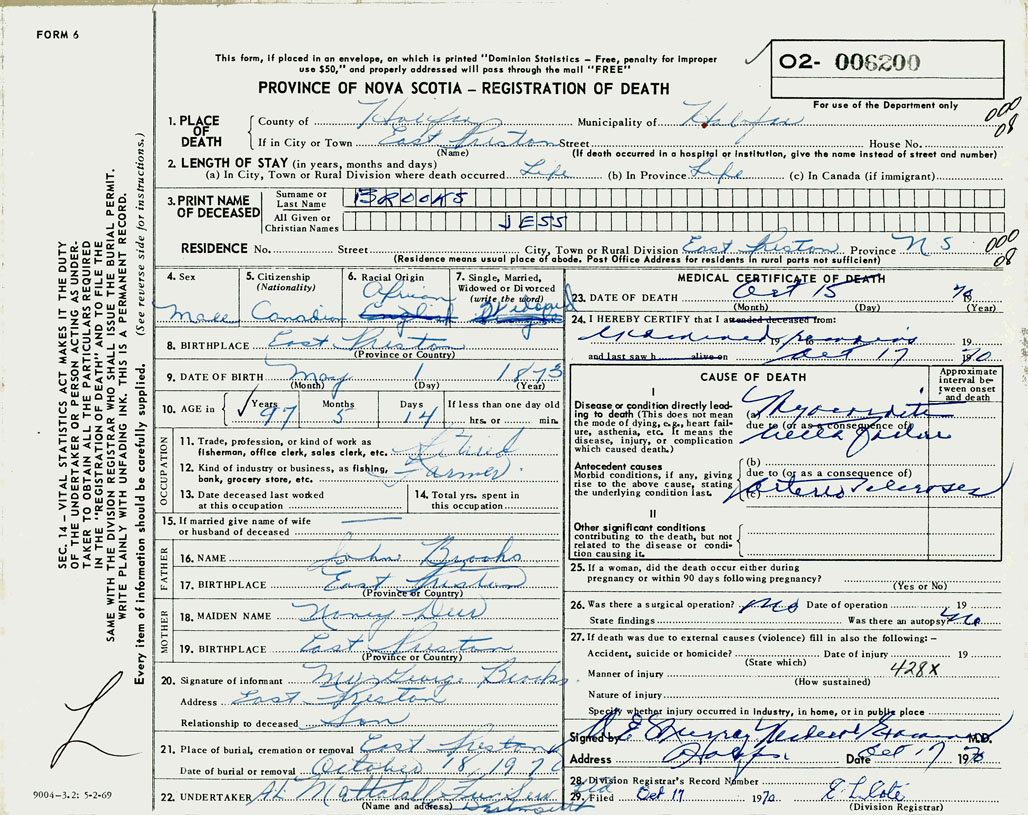 FORM 6
This form, if placed in an envelope, on which is printed "Dominion Statistics – Free, penalty for improper
use $50," and properly addressed will pass through the mail "FREE"
PROVINCE OF NOVA SCOTIA – REGISTRATION OF DEATH
O2- 006200
For use of the Department only
000
08
1. PLACE OF DEATH
County of Halifax Municipality of Halifax
If in City or Town East Preston Street House No.
(Name) (If death occurred in a hospital or institution, give the name instead of street and number)
2. LENGTH OF STAY (in years, months and days)
(a) In City, Town or Rural Division where death occurred Life (b) In Province Life (c) In Canada (if immigrant)
3. PRINT NAME OF DECEASED
Surname or Last Name BROOKS
All Given or Christian Names JESS
RESIDENCE No. Street City, Town or Rural Division East Preston Province N S
000
08
(Residence means usual place of abode. Post Office Address for residents in rural parts not sufficient)
4. Sex Male
5. Citizenship (Nationality) Canadian
6. Racial Origin African England
7. Single, Married, Widowed or Divorced (write the word) Widowed
8. BIRTHPLACE East Preston
(Province or Country)
9. DATE OF BIRTH May 1 1873
(Month) (Day) (Year)
10. AGE in Years 97 Months 5 Days 14 If less than one day old hrs. or min.
OCCUPATION
11. Trade, profession, or kind of work as fisherman, office clerk, sales clerk, etc. Retired
12. Kind of industry or business, as fishing, bank, grocery store, etc. Farmer
13. Date deceased last worked at this occupation
14. Total yrs. spent in this occupation
15. If married give name of wife or husband of deceased
FATHER
16. NAME John Brooks
17. BIRTHPLACE East Preston
(Province or Country)
MOTHER
18. MAIDEN NAME Nancy
19. BIRTHPLACE East Preston
(Province or Country)
20. Signature of informant Mrs George Brooks
Address East Preston
Relationship to deceased Son
21. Place of burial, cremation or removal East Preston
Date of burial or removal October 18 1970
22. UNDERTAKER Mattatall Fun Serv
(Name and address) Dartmouth
MEDICAL CERTIFICATE OF DEATH
23. DATE OF DEATH Oct 15 70
(Month) (Day) (Year)
24. I HEREBY CERTIFY that I attended deceased from:
examined 19 remains 19
and last saw h alive on Oct 17 1970
CAUSE OF DEATH
Approximate interval between onset and death
I
Disease or condition directly leading to death (This does not mean the mode of dying, e.g., heart failure, asthenia, etc. It means the disease, injury, or complication which caused death.)
(a) Myocarditis
due to (or as a consequence of)
Antecedent causes
Morbid conditions, if any, giving rise to the above cause, stating the underlying condition last.
(b)
due to (or as a consequence of)
(c) Arterio Sclerosis
II
Other significant conditions contributing to the death, but not related to the disease or condition causing it.
25. If a woman, did the death occur either during pregnancy or within 90 days following pregnancy?
(Yes or No)
26. Was there a surgical operation? No Date of operation 19
State findings Was there an autopsy No
27. If death was due to external causes (violence) fill in also the following: –
Accident, suicide or homicide? Date of injury 19
(State which)
Manner of injury 428X
(How sustained)
Nature of injury
Specify whether injury occurred in industry, in home, or in public place
Signed by E Murray Medical Examiner M.D.
Address Halifax Date Oct 17 1970
28. Division Registrar's Record Number
29. Filed Oct 17 1970
(Division Registrar)
SEC. 14 – VITAL STATISTICS ACT MAKES IT THE DUTY
OF THE UNDERTAKER OR PERSON ACTING AS UNDER-
TAKER TO OBTAIN ALL THE PARTICULARS REQUIRED
IN THE "REGISTRATION OF DEATH" AND TO FILE THE
SAME WITH THE DIVISION REGISTRAR WHO SHALL ISSUE THE BURIAL PERMIT.
WRITE PLAINLY WITH UNFADING INK. THIS IS A PERMANENT RECORD.
Every item of information should be carefully supplied. (See reverse side for instructions.)
9004-3.2: 5-2-69